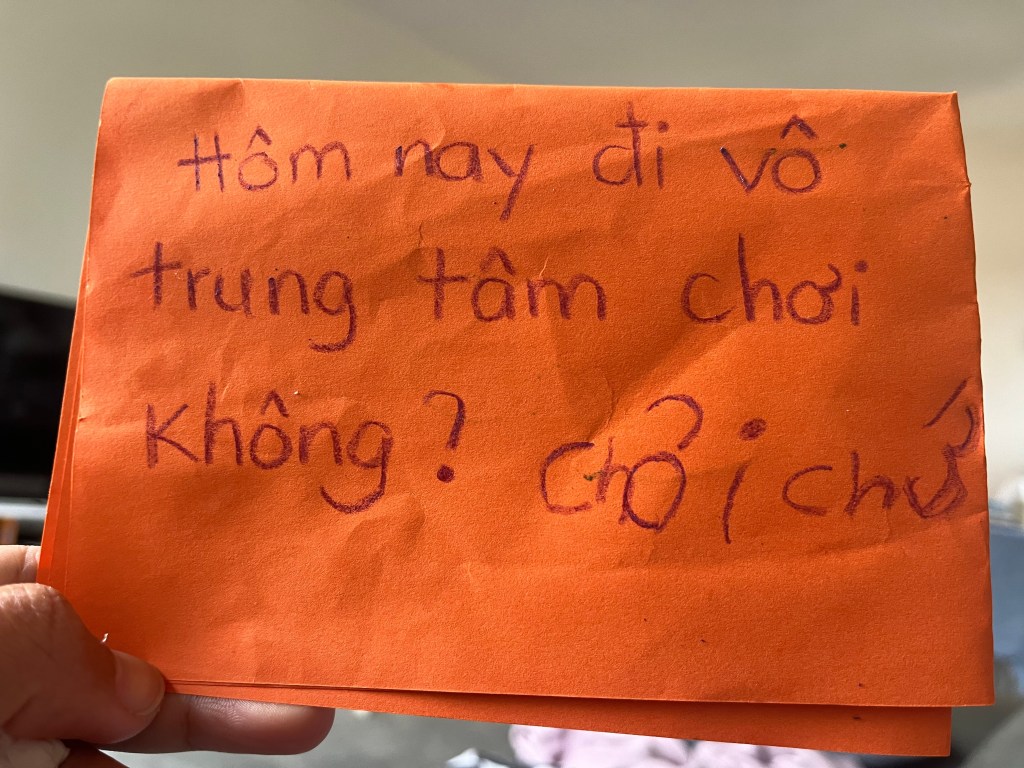 Hôm nay đi vô
trung tâm chơi
không? chổi chứ